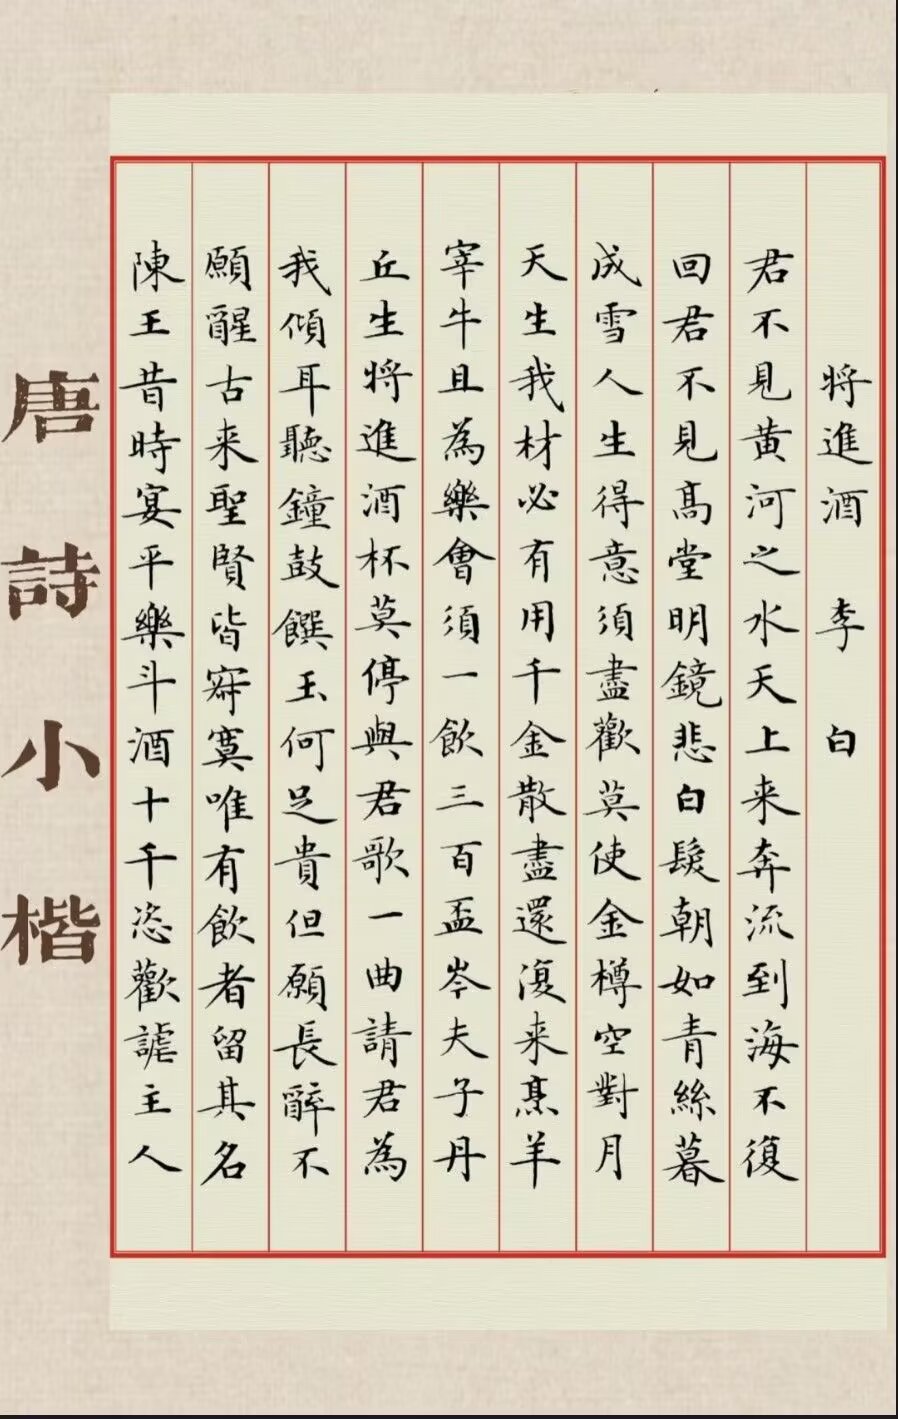 將進酒 李白
君不見黃河之水天上来奔流到海不復
回君不見高堂明鏡悲白髮朝如青絲暮
成雪人生得意須盡歡莫使金樽空對月
天生我材必有用千金散盡還復来烹羊
宰牛且為樂會須一飲三百盃岑夫子丹
丘生將進酒杯莫停與君歌一曲請君為
我傾耳聽鐘鼓饌玉何足貴但願長醉不
願醒古来聖賢皆寂寞唯有飲者留其名
陳王昔時宴平樂斗酒十千恣歡謔主人
唐詩小楷